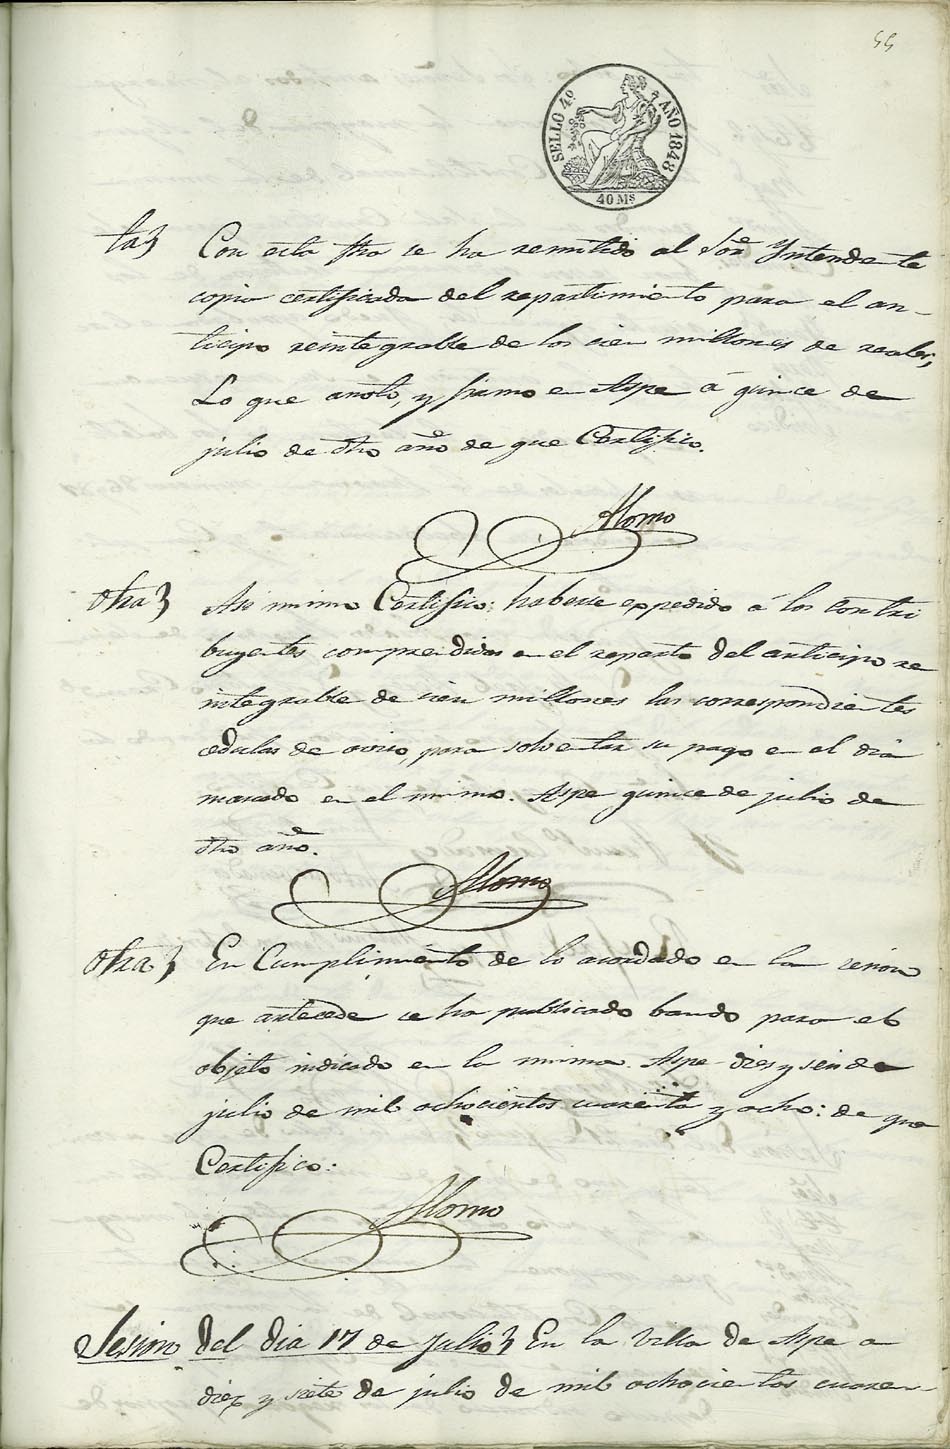 55
SELLO 4º AÑO 1848
40 Ms
ta}
Con esta fha se ha remitido al Sor. Yntendente
copia certificada del repartimiento para el an-
ticipo reintegrable de los cien millones de reales,
Lo que anoto, y firmo en Aspe á quince de
julio de dho año de que Certifico.
Alonso
Otra}
Asi mismo Certifico: haberse expedido á los Contri
buyentes comprendidos en el reparto del anticipo re
integrable de cien millones las correspondientes
cedulas de aviso, para solventar su pago en el dia
marcado en el mismo. Aspe quince de julio de
dho año.
Alonso
Otra}
En Cumplimiento de lo acordado en la sesion
que antecede se ha publicado bando para el
objeto indicado en la misma. Aspe diez y seis de
julio de mil ochocientos cuarenta y ocho: de que
Certifico:
Alonso
Sesion del dia 17 de Julio} En la Villa de Aspe a
diez y siete de julio de mil ochocientos cuaren-